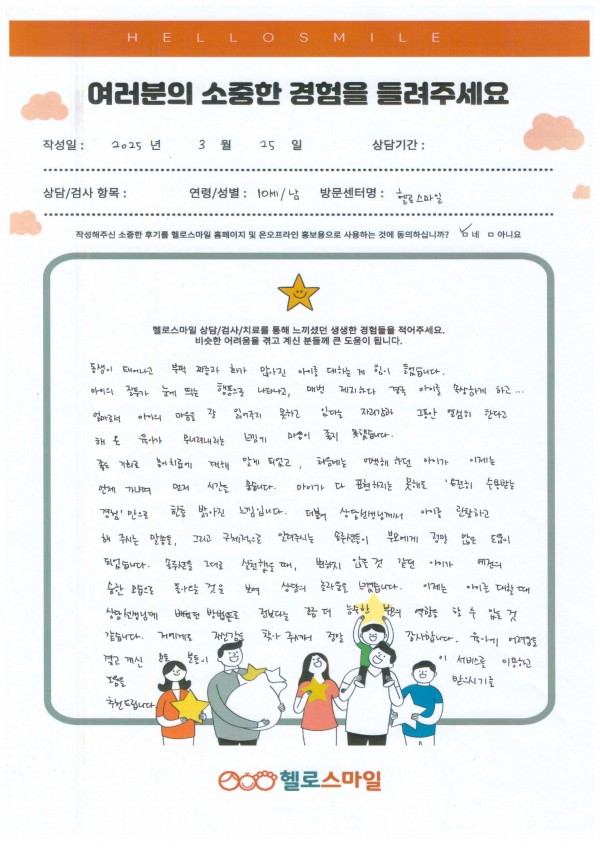 HELLOSMILE
여러분의 소중한 경험을 들려주세요
작성일 : 2025 년 3 월 25 일 상담기간 :
상담/검사 항목 : 연령/성별 : 10세/남 방문센터명 : 헬로스마일
작성해주신 소중한 후기를 헬로스마일 홈페이지 및 온오프라인 홍보용으로 사용하는 것에 동의하십니까? ☑네 □아니요
헬로스마일 상담/검사/치료를 통해 느끼셨던 생생한 경험들을 적어주세요.
비슷한 어려움을 겪고 계신 분들께 큰 도움이 됩니다.
동생이 태어나고 부쩍 짜증과 화가 많아진 아이를 대하는 게 힘이 들었습니다.
아이의 질투가 눈에 띄는 행동으로 나타나고, 매번 제지하다 결국 아이를 속상하게 하고...
엄마로서 아이의 마음을 잘 읽어주지 못하고 있다는 자괴감과 그동안 열심히 한다고
해 온 육아가 무너져내리는 느낌에 마음이 좋지 못했습니다.
좋은 기회로 놀이치료에 대해 알게 되었고, 처음에는 어색해 하던 아이가 이제는
언제 가냐며 먼저 시간을 묻습니다. 아이가 다 표현하지는 못해도 '온전히 수용받는
경험' 만으로 한층 밝아진 느낌입니다. 더불어 상담선생님께서 아이를 관찰하고
해 주시는 말씀들, 그리고 구체적으로 알려주시는 솔루션들이 부모에게 정말 많은 도움이
되었습니다. 솔루션을 그대로 실천했을 때, 변하지 않을 것 같던 아이가 예전의
순한 모습으로 돌아오는 것을 보며 상담의 놀라움을 느꼈습니다. 이제는 아이를 대할 때
상담선생님께 배웠던 방법들로 전보다는 좀 더 능숙한 부모의 역할을 할 수 있을 것
같습니다. 저에게도 자신감을 찾아 주셔서 정말 감사합니다. 육아에 어려움을
겪고 계신 모든 분들이 이 서비스를 이용하고
도움을 받으시기를
추천드립니다
헬로스마일